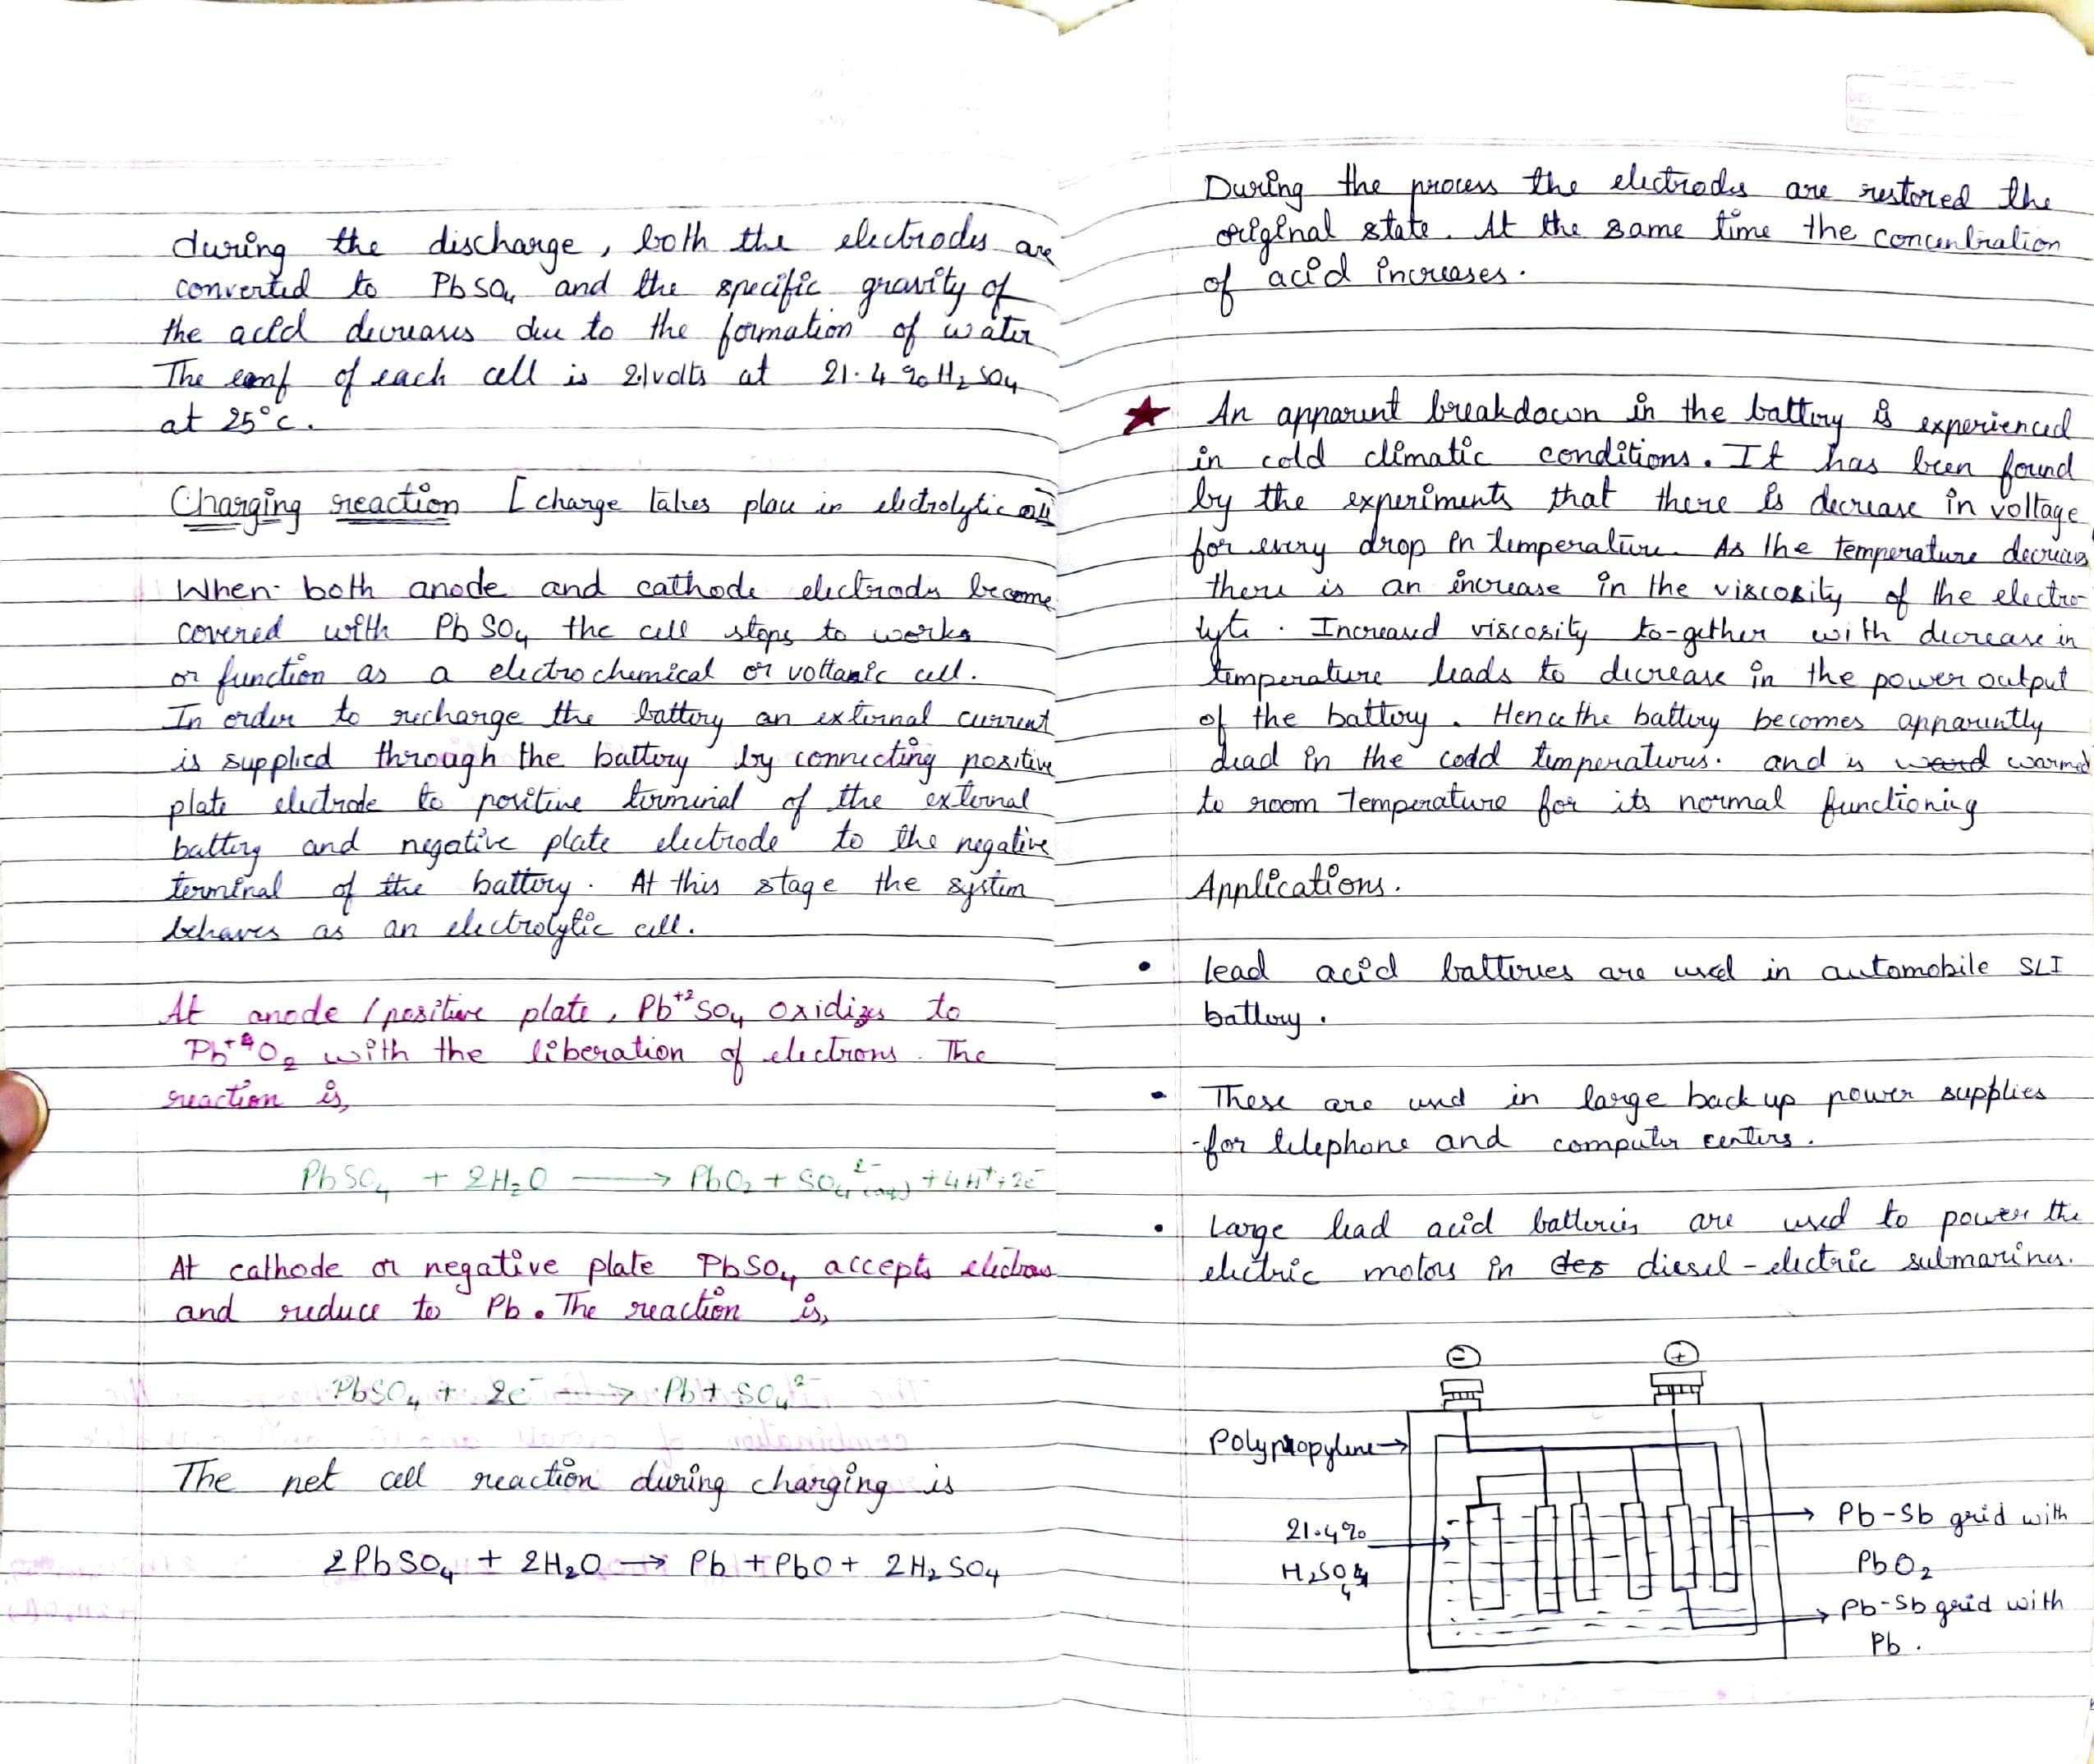 during the discharge, both the electrodes are
converted to PbSO4 and the specific gravity of
the acid decreases due to the formation of water
The emf of each cell is 2.1volts at 21.4% H2SO4
at 25°c.
Charging reaction [charge takes place in electrolytic cell]
When both anode and cathode electrodes become
covered with PbSO4 the cell stops to works
or function as a electrochemical or voltanic cell.
In order to recharge the battery an external current
is supplied through the battery by connecting positive
plate electrode to positive terminal of the external
battery and negative plate electrode to the negative
terminal of the battery. At this stage the system
behaves as an electrolytic cell.
At anode / positive plate, Pb+2SO4 oxidizes to
Pb+4O2 with the liberation of electrons. The
reaction is,
PbSO4 + 2H2O → PbO2 + SO4 2-(aq) + 4H+ + 2e-
At cathode or negative plate PbSO4 accepts electrons
and reduce to Pb. The reaction is,
PbSO4 + 2e- → Pb + SO4 2-
The net cell reaction during charging is
2PbSO4 + 2H2O → Pb + PbO + 2H2SO4
During the process the electrodes are restored the
original state. At the same time the concentration
of acid increases.
★ An apparent breakdown in the battery is experienced
in cold climatic conditions. It has been found
by the experiments that there is decrease in voltage
for every drop in temperature. As the temperature decreases
there is an increase in the viscosity of the electro-
lyte. Increased viscosity to-gether with decrease in
temperature leads to decrease in the power output
of the battery. Hence the battery becomes apparently
dead in the codd temperatures. and is warmed
to room temperature for its normal functioning
Applications.
• lead acid batteries are used in automobile SLI
battery.
• These are used in large back up power supplies
-for telephone and computer centers.
• Large lead acid batteries are used to power the
electric motors in des diesel-electric submarines.
- +
Polypropylene→
21.4%
H2SO4
→ Pb-Sb grid with
PbO2
→ Pb-Sb grid with
Pb.